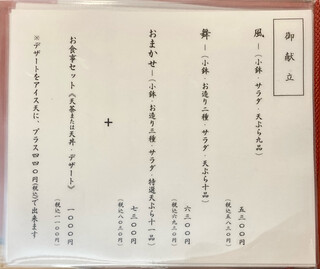 御献立
風―(小鉢・サラダ・天ぷら九品)
五三〇〇円
(税込五八三〇円)
舞―(小鉢・お造り二種・サラダ・天ぷら十品)
六三〇〇円
(税込六九三〇円)
おまかせ―(小鉢・お造り三種・サラダ・特選天ぷら十一品)
七三〇〇円
(税込八〇三〇円)
+
お食事セット《天茶または天丼・デザート》
一〇〇〇円
(税込一一〇〇円)
※デザートをアイス天に、プラス四四〇円(税込)で出来ます